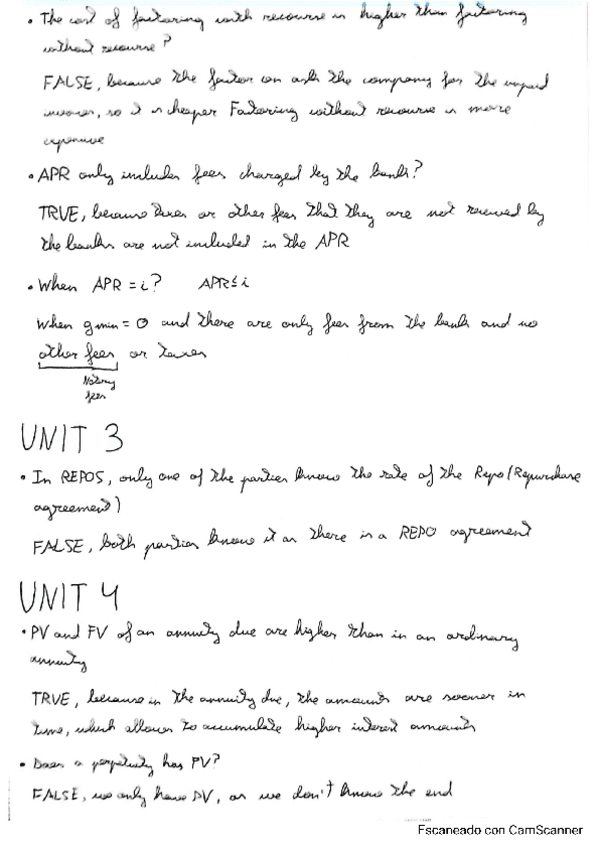 • The cost of factoring with recourse is higher than factoring
without recourse?
FALSE, because the factor can ask the company for the unpaid
invoices, so it is cheaper Factoring without recourse is more
expensive
• APR only includes fees charged by the bank?
TRUE, because taxes or other fees that they are not received by
the banks are not included in the APR
• When APR = i? APR ≤ i
When gmin = 0 and there are only fees from the bank and no
other fees or taxes
Notary
fees
UNIT 3
• In REPOS, only one of the parties knows the rate of the Repo (Repurchase
agreement)
FALSE, both parties know it as there is a REPO agreement
UNIT 4
• PV and FV of an annuity due are higher than in an ordinary
annuity
TRUE, because in the annuity due, the amounts are sooner in
time, which allows to accumulate higher interest amounts
• Does a perpetuity has PV?
FALSE, we only have PV, as we don't know the end
Escaneado con CamScanner